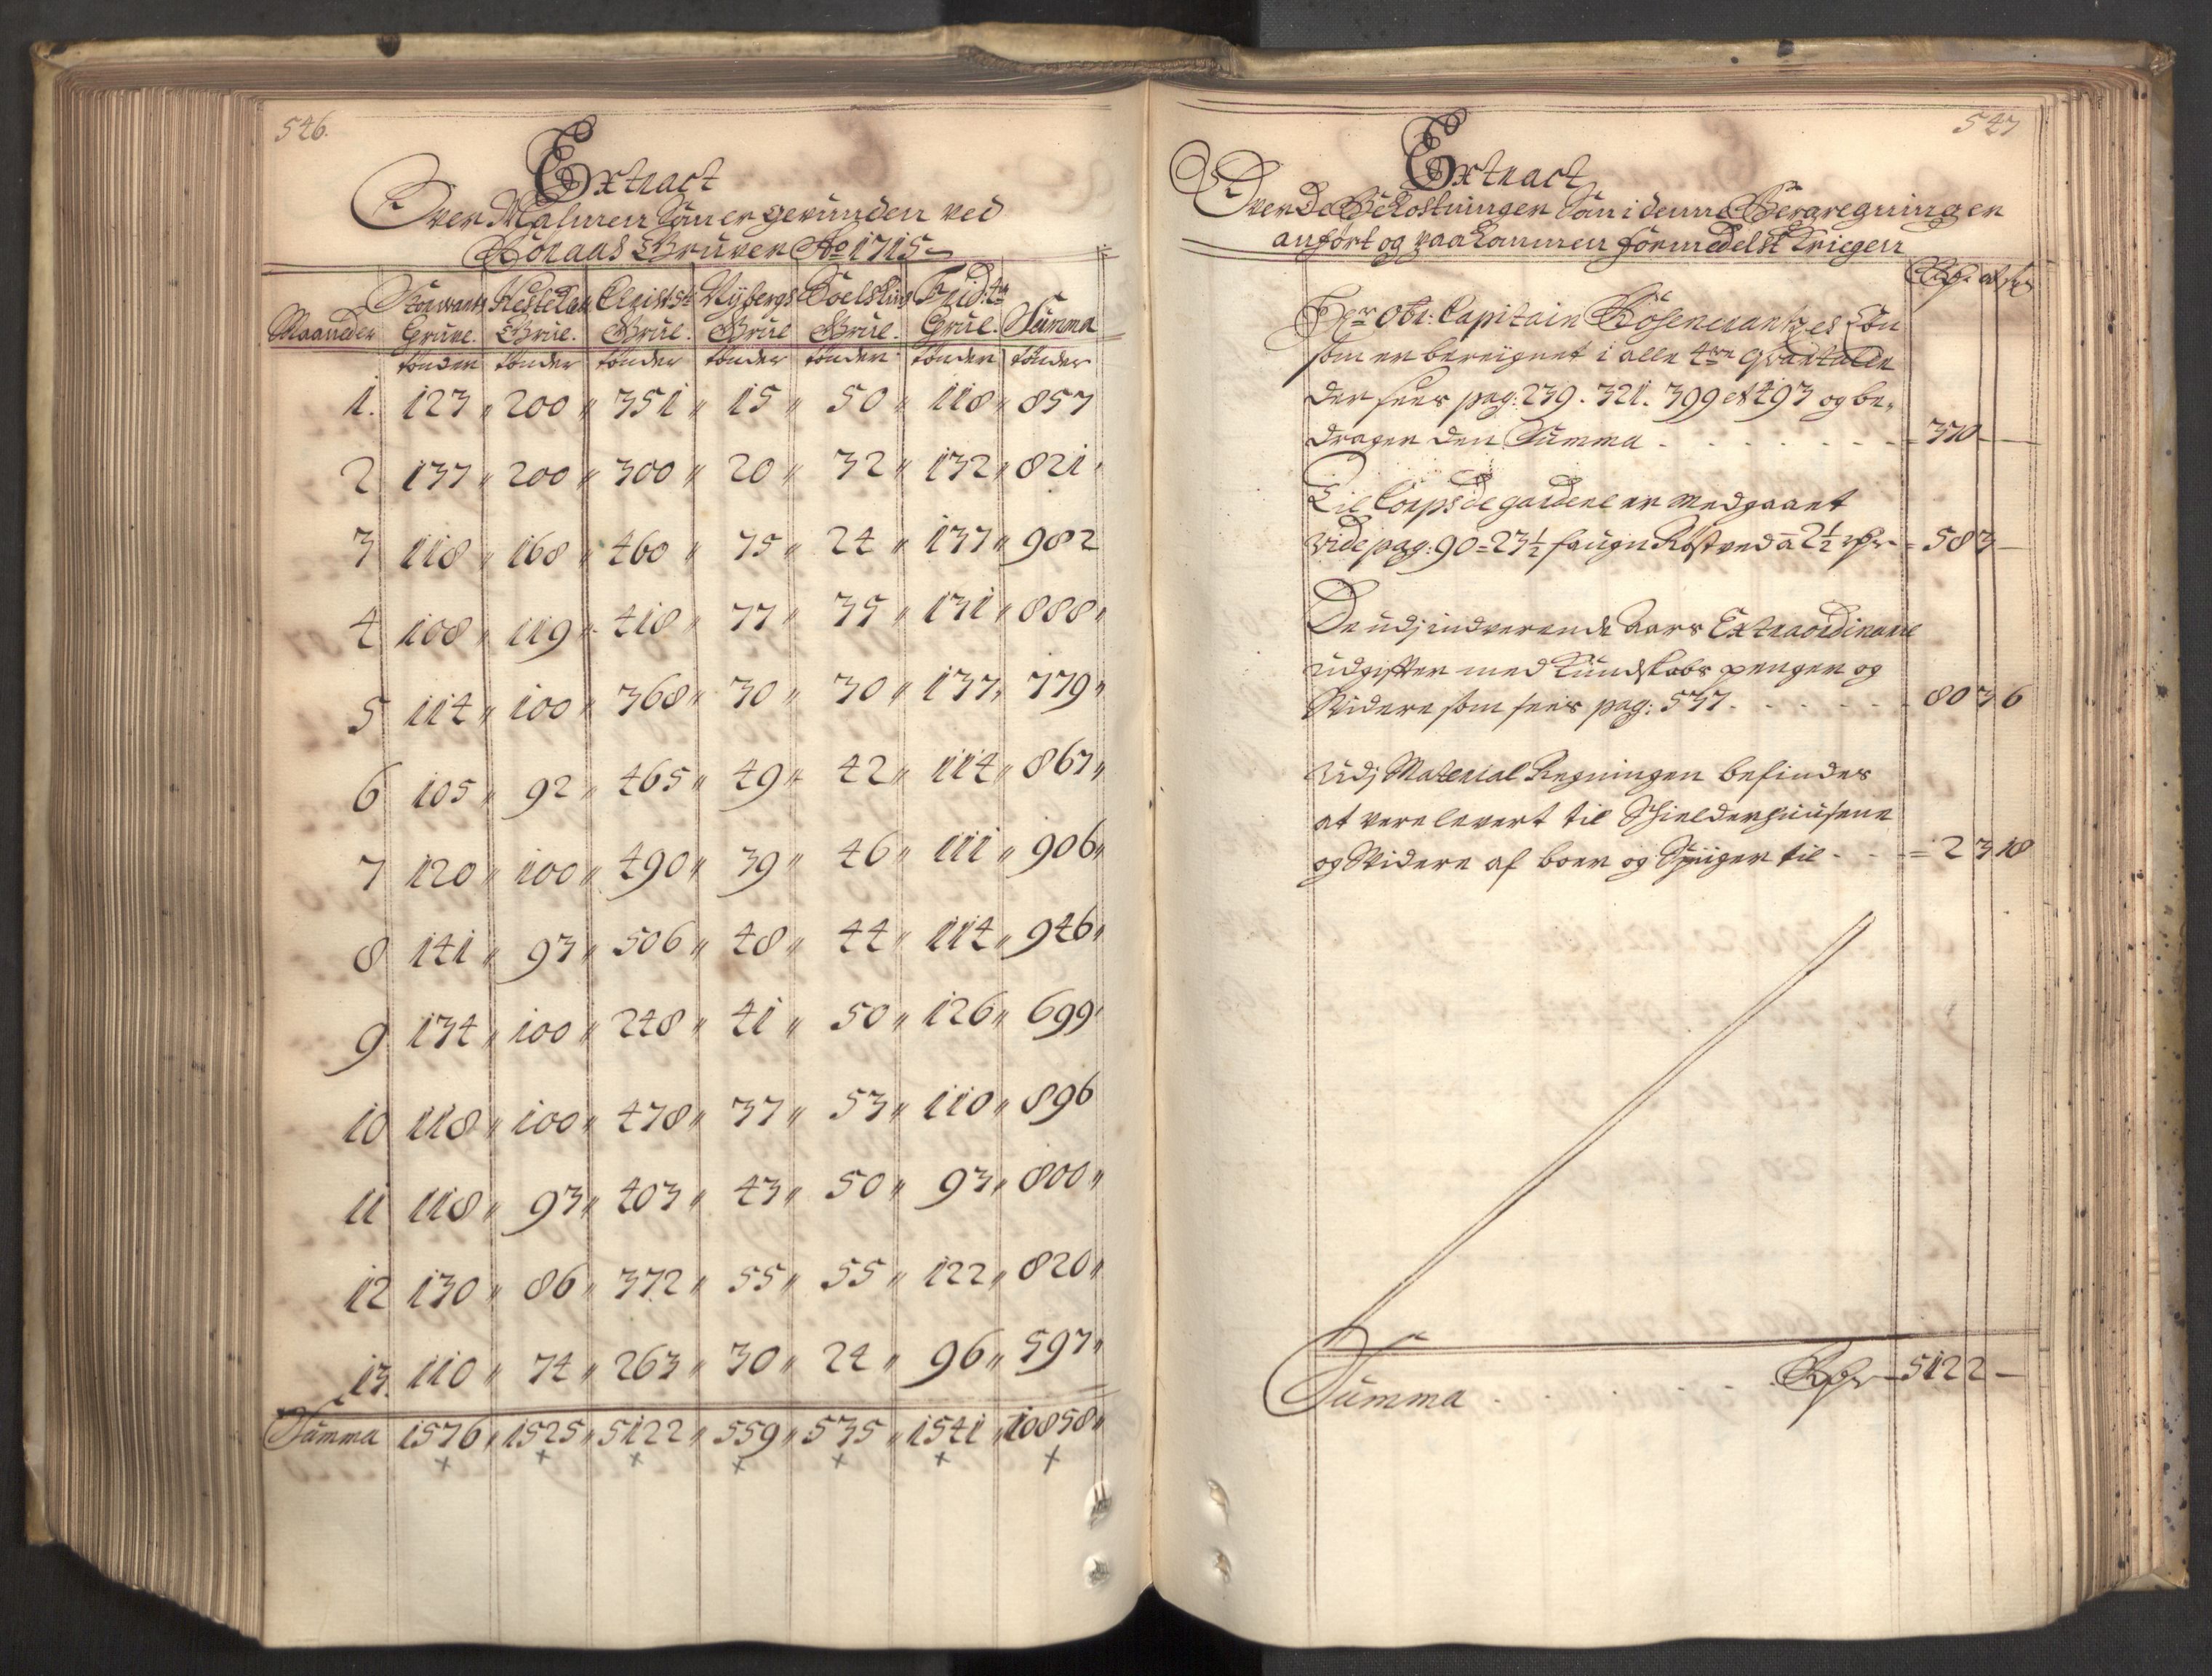 546.
Extract
Over Malmen Som er gevunden ved
Röraas Gruver Ao 1715
Maaneder Storvarts Grube. Hestekla Grue. Christ: St: Grue. Nÿbergs Grue Soelskins Grue. Frid: Grue. Summa
tönder tönder tönder tönder tönder tönder tönder
1. 123 " 200 " 351 " 15 " 50 " 118 " 857
2 137 " 200 " 300 " 20 " 32 " 132 " 821
3 118 " 168 " 460 " 75 " 24 " 137 " 982
4 108 " 119 " 418 " 77 " 35 " 131 " 888 "
5 114 " 100 " 368 " 30 " 30 " 137 " 779 "
6 105 " 92 " 465 " 49 " 42 " 114 " 867 "
7 120 " 100 " 490 " 39 " 46 " 111 " 906 "
8 141 " 93 " 506 " 48 " 44 " 114 " 946 "
9 134 " 100 " 248 " 41 " 50 " 126 " 699 "
10 118 " 100 " 478 " 37 " 53 " 110 " 896
11 118 " 93 " 403 " 43 " 50 " 93 " 800 "
12 130 " 86 " 372 " 55 " 55 " 122 " 820 "
13. 110 " 74 " 263 " 30 " 24 " 96 " 597 "
Summa 1576 " 1525 " 5122 " 559 " 535 " 1541 " 10858 "
547
Extract
Over De Bekostninger Som i denne Bergregninger
anfört og paakommen formedelst Krigen
Hr: Obr: Capitain Rosencrantzes Lön
som er beregnet i alle 4re Qvartaler
der sees pag: 239. 321. 399 et 493 og be-
drager den Summa - 370 -
Til Corps de gardene er medgaaet
vide pag: 90 = 23½ faugn Röstved a 2½ - 58 3 -
De udj indverende Aars Extraordinaire
udgifter med Kundskabs penger og
Videre som sees pag: 537. - 80 3 6
Udj Material Regningen befindes
at vere levert til Schielderhuusene
og Videre af boer og Spiiger til - = 2 3 18
Summa - Rdr 512 2 -